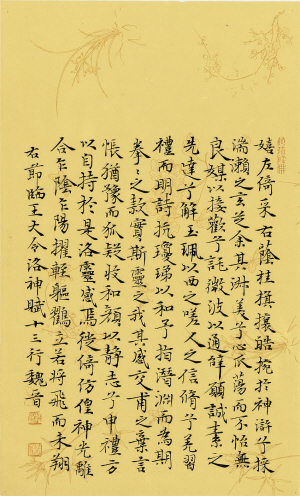 嬉左倚采右蔭桂旗攘皓捥於神滸兮採
湍瀨之玄芝余其淋美兮心振蕩而不怡無
良媒以接歡兮託微波以通辭願誠素之
先達兮解玉珮以要之嗟人之信脩兮羌習
禮而明詩抗瓊珶以和予指潛淵而為期
拳〻之款實斯靈之我其感交甫之棄言
悵猶豫而狐疑收和顏以靜志兮申禮方
以自持於是洛靈感焉徙倚彷徨神光離
合乍陰乍陽擢輕軀鶴立若將飛而未翔
右節臨王大令洛神賦十三行魏晉